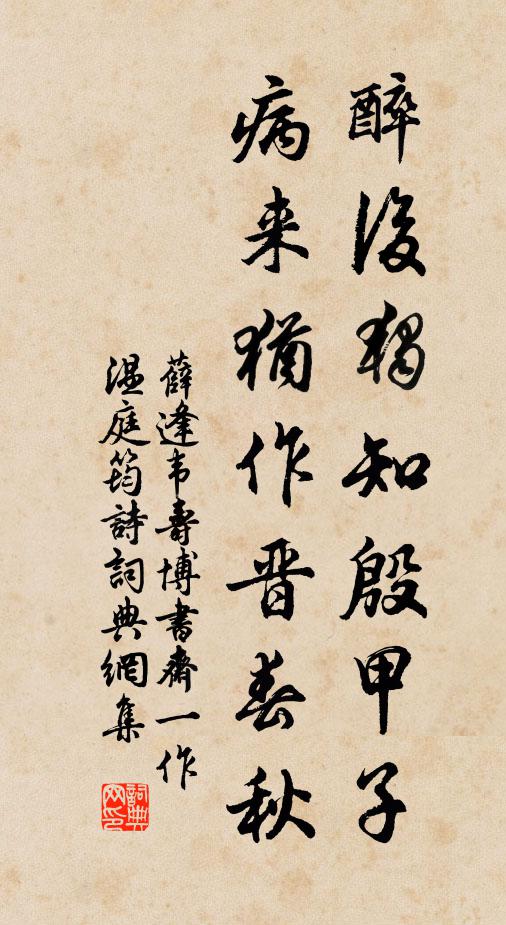 醉後獨知殷甲子
病来猶作晉春秋
薛逢韦壽博書齋一作
温庭筠詩詞典網集
詞典网印